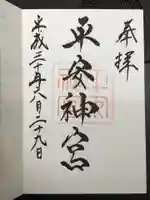 奉拝
平安神宮
平成二十年八月二十九日